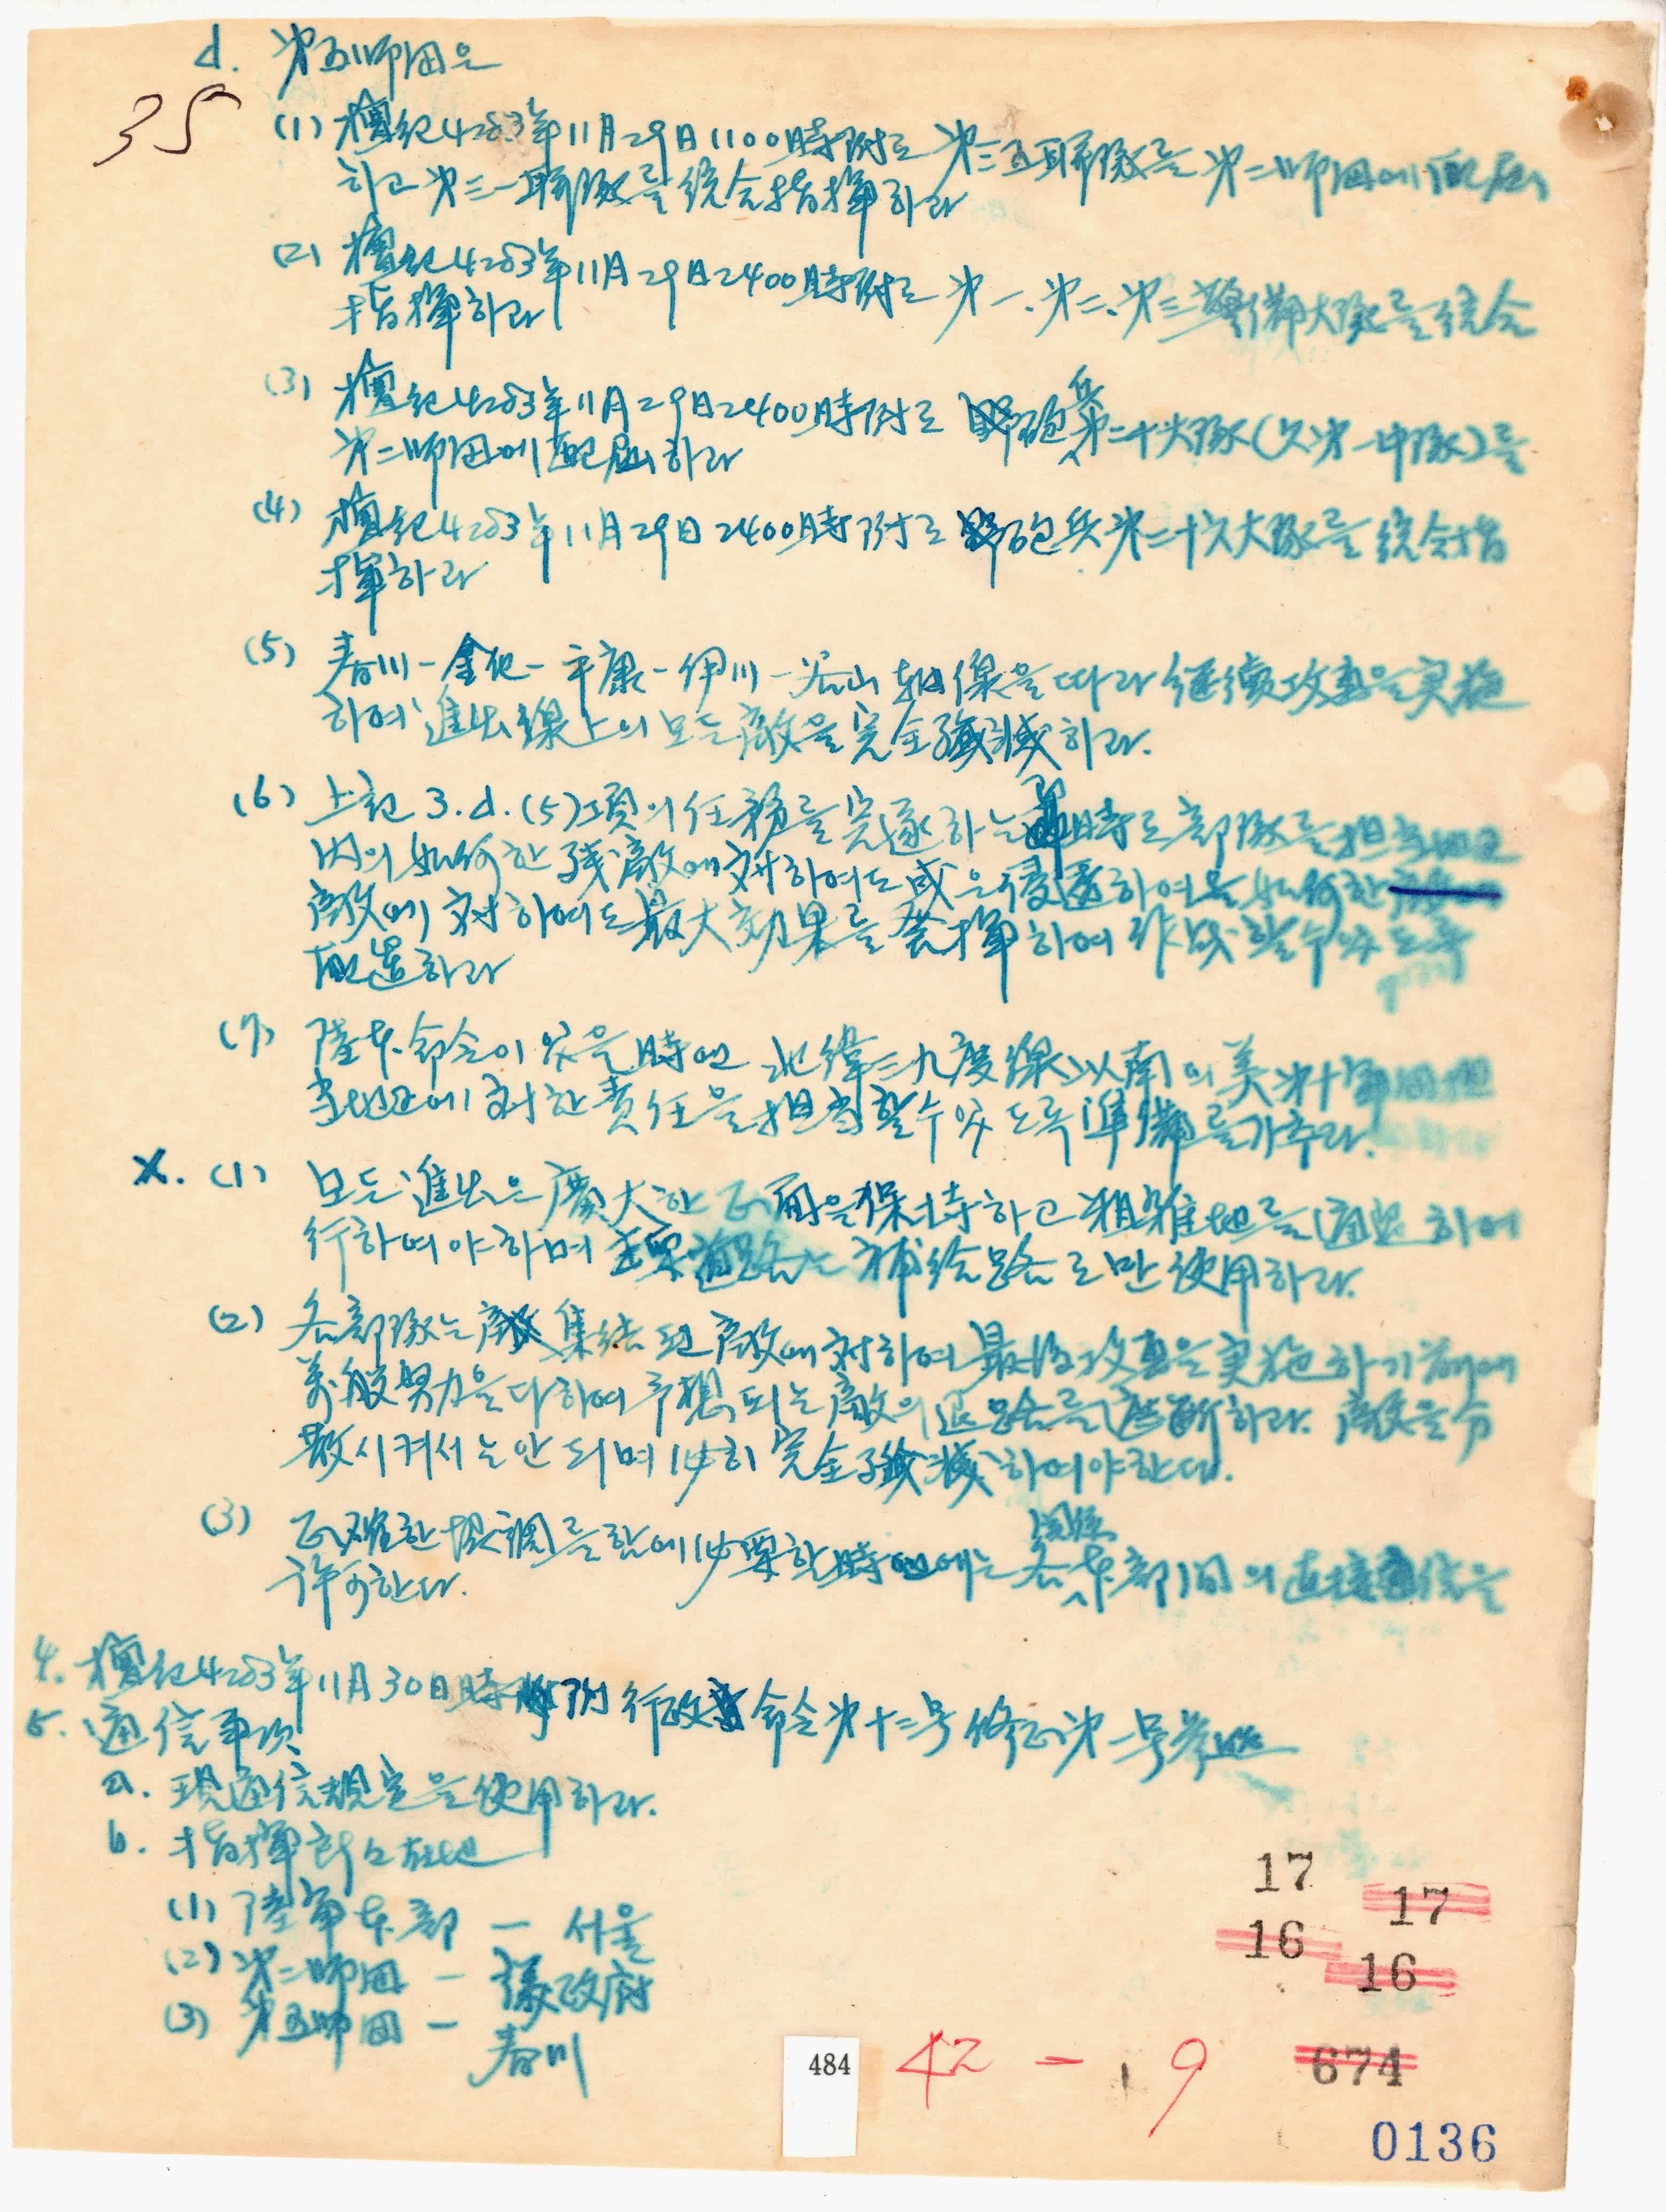 d. 第五師団은
35
(1) 檀紀4283年11月29日1100時附로 第三五聯隊를 第二師団에 配属
하고 第三一聯隊를 統合指揮하라
(2) 檀紀4283年11月29日2400時附로 第一.第二.第三警備大隊를 統合
指揮하라
(3) 檀紀4283年11月29日2400時附로 野砲兵第二十大隊(欠第一中隊)를
第二師団에 配属하라
(4) 檀紀4283年11月29日2400時附로 野砲兵第二十六大隊를 統合指
揮하라
(5) 春川-金化-平康-伊川-谷山 軸線을 따라 継續攻擊을 実施
하여 進出線上의 모든 敵을 完全殲滅하라.
(6) 上記 3.d.(5)項의 任務를 完遂하는 即時로 部隊를 担当地区
内의 如何한 残敵에 対하여도 或은 侵透하여오는 如何한
敵에 対하여도 最大効果를 発揮하여 作战할수있도록
配置하라
(7) 陸本命令이 有을 時에 北緯三九度線以南의 美第十軍団担
当地区에 対한 責任을 担当할수있도록 準備를 가추라.
X. (1) 모든 進出은 廣大한 正面을 保持하고 粗雑地를 通過하여
行하여야하며 主要道路는 補給路로만 使用하라.
(2) 各部隊는 集結된 敵에 対하여 最後攻擊을 実施하기 前에
万般努力을 다하여 予想되는 敵의 退路를 遮斷하라. 敵을 分
散시켜서는 안되며 必히 完全殲滅하여야한다.
(3) 正確한 協調를 함에 必要한 時에는 各関係本部间의 直接通信을
許可한다.
4. 檀紀4283年11月30日時附 行政命令第十三号修正第一号参照
5. 通信事項
a. 現通信規定을 使用하라.
b. 指揮所々在地
(1) 陸軍本部 - 서울
(2) 第二師団 - 議政府
(3) 第五師団 - 春川
17
17
16
16
484
42-19
674
0136